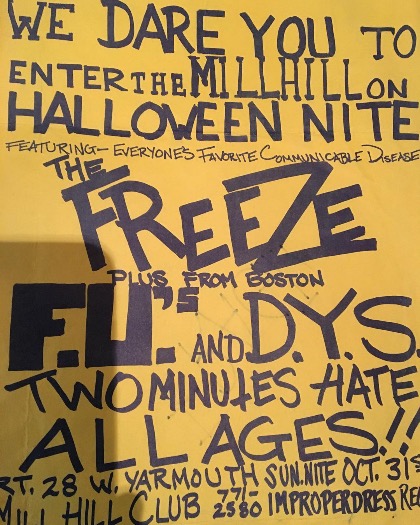 WE DARE YOU TO
ENTER THE MILL HILL ON
HALLOWEEN NITE
FEATURING- EVERYONE'S FAVORITE COMMUNICABLE DISEASE
THE
FREEZE
PLUS FROM BOSTON
F.U.'S AND D.Y.S.
TWO MINUTES HATE
ALL AGES!!
RT. 28 W. YARMOUTH SUN. NITE OCT. 31S
MILL HILL CLUB 771-2580 IMPROPER DRESS RE